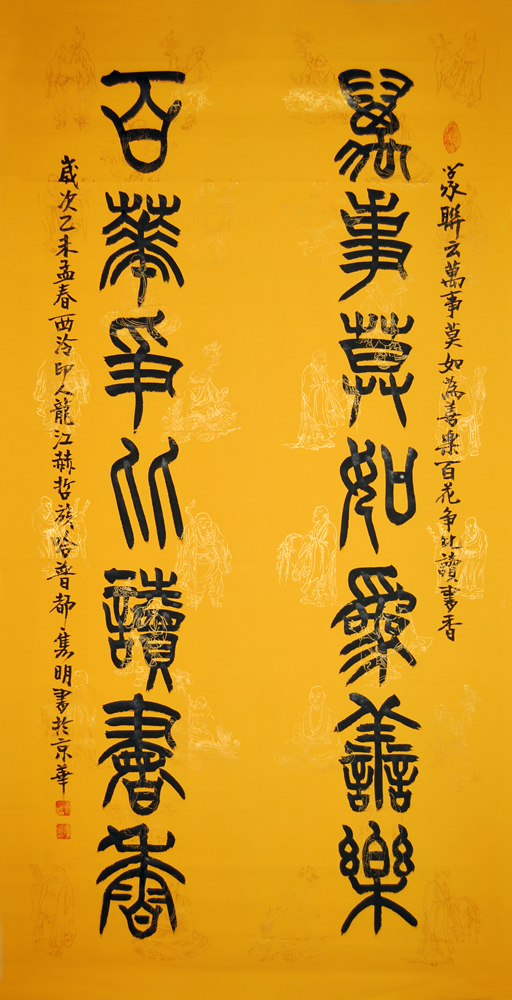 篆聯云萬事莫如為善樂百花争比讀書香
萬事莫如爲譱樂
百華爭比讀書香
歲次乙未孟春西泠印人龍江赫哲族哈普都雋明書於京華